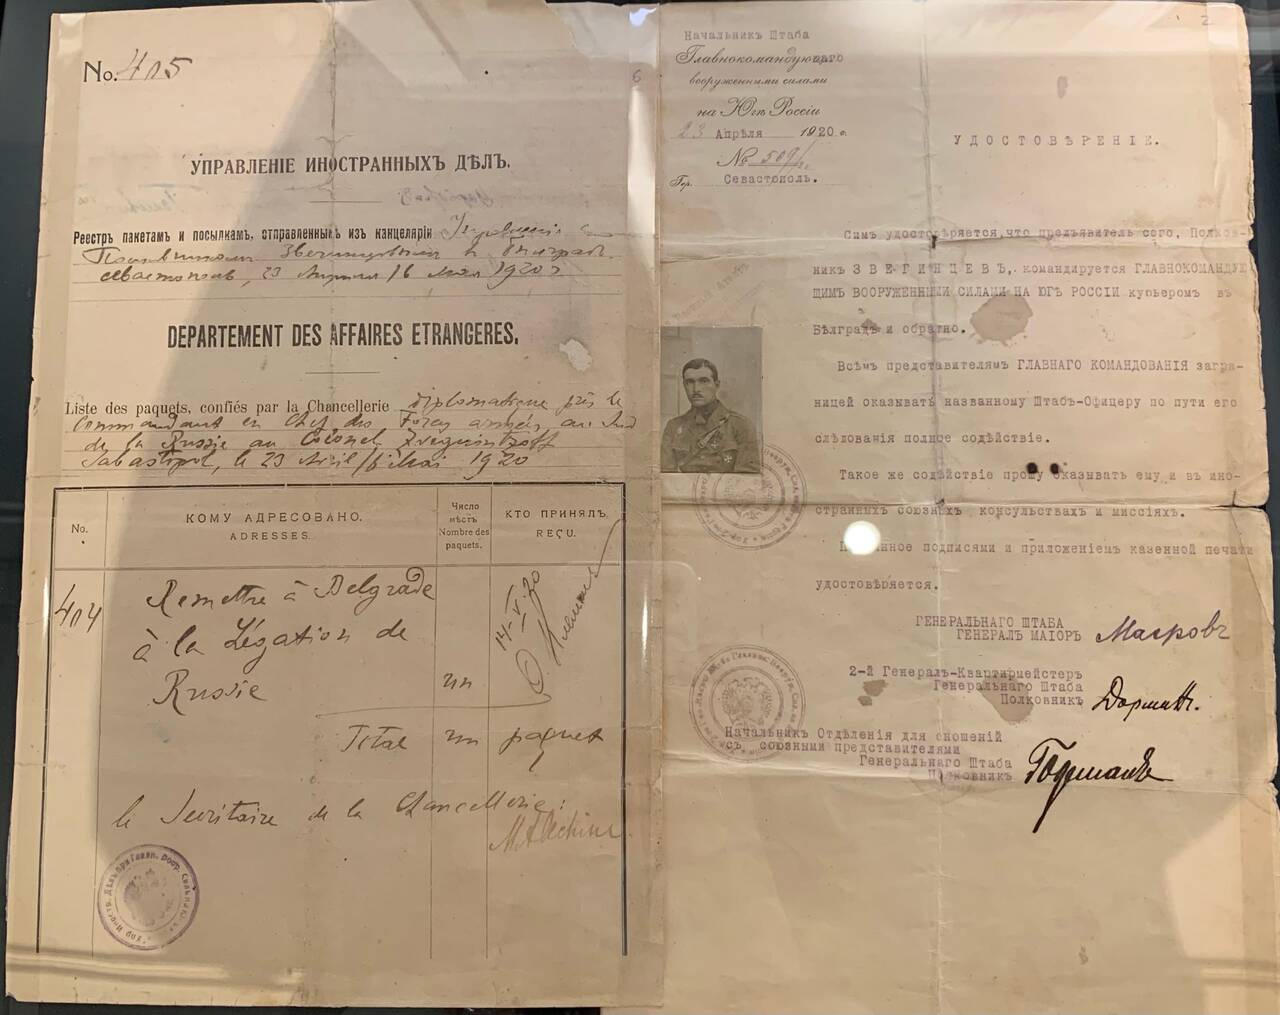 No. 405
6
УПРАВЛЕНІЕ ИНОСТРАННЫХЪ ДѢЛЪ.
Реестръ пакетамъ и посылкамъ, отправленнымъ изъ канцеляріи
Севастополь, 23 Апрѣля/6 Мая 1920 г
DEPARTEMENT DES AFFAIRES ETRANGERES.
Liste des paquets, confiés par la Chancellerie diplomatique près le
Commandant en Chef des Forces armées au Sud
de la Russie au Colonel Zveguintzoff
Sabastopol, le 23 Avril/6 Mai 1920
No.
КОМУ АДРЕСОВАНО.
ADRESSES.
Число
мѣстъ
Nombre des
paquets.
КТО ПРИНЯЛЪ
REÇU.
404
Remettre à Belgrade
à la Légation de
Russie
un
14-V-20
Total un paquet
le Secrétaire de la Chancellerie:
2
Начальникъ Штаба
Главнокомандующаго
вооруженными силами
на Югѣ Россіи
23 Апрѣля 1920 г.
№ 509/
Гор. Севастополь.
УДОСТОВѢРЕНІЕ.
Симъ удостовѣряется, что предъявитель сего, Полков-
никъ ЗВЕГИНЦЕВЪ, командируется ГЛАВНОКОМАНДУЮ
ЩИМЪ ВООРУЖЕННЫМИ СИЛАМИ НА ЮГѢ РОССІИ курьеромъ въ
Бѣлградъ и обратно.
Всѣмъ представителямъ ГЛАВНАГО КОМАНДОВАНІЯ загра-
ницей оказывать названному Штабъ-Офицеру по пути его
слѣдованія полное содѣйствіе.
Такое же содѣйствіе прошу оказывать ему и въ ино-
странныхъ союзныхъ консульствахъ и миссіяхъ.
подписями и приложеніемъ казенной печати
удостовѣряется.
ГЕНЕРАЛЬНАГО ШТАБА
ГЕНЕРАЛЪ МАІОРЪ Махровъ
2-й Генералъ-Квартирмейстеръ
Генеральнаго Штаба
Полковникъ Дорманъ
Начальникъ Отдѣленія для сношеній
съ союзными представителями
Генеральнаго Штаба
Полковникъ